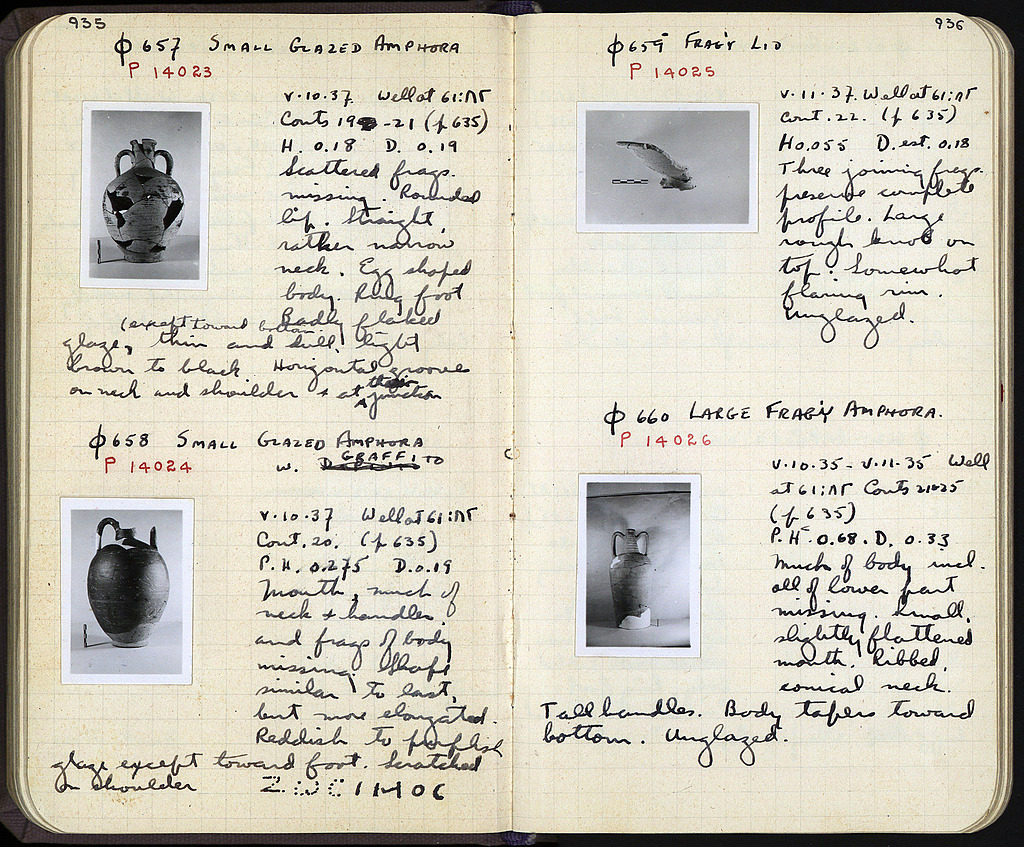 935
ϕ 657 SMALL GLAZED AMPHORA
P 14023
V·10·37 Well at 61:ΛΓ
Conts 19-21 (p 635)
H. 0.18 D. 0.19
Scattered frags.
missing. Rounded
lip. Straight,
rather narrow
neck. Egg shaped
body. Ring foot
Badly flaked
(except toward bottom)
glaze, thin and dull, light
brown to black. Horizontal grooves
on neck and shoulder + at their
junction
ϕ 658 SMALL GLAZED AMPHORA
P 14024 w. GRAFFITO
V·10·37 Well at 61:ΛΓ
Cont. 20. (p 635)
P.H. 0.275 D. 0.19
Mouth, much of
neck + handles,
and frags of body
missing. Shape
similar to last,
but more elongated.
Reddish to purplish
glaze except toward foot. Scratched
on shoulder ΖωCΙΜΟC
936
ϕ 659 FRAG'Y LID
P 14025
V·11·37. Well at 61:ΛΓ
Cont. 22. (p 635)
H 0.055 D. est. 0.18
Three joining frags.
preserve complete
profile. Large
rough knob on
top. Somewhat
flaring rim.
Unglazed.
ϕ 660 LARGE FRAG'Y AMPHORA.
P 14026
V·10·35 - V·11·35 Well
at 61:ΛΓ Conts 21-25
(p 635)
P.H. 0.68. D. 0.33
Much of body incl.
all of lower part
missing. Small,
slightly flattened
mouth. Ribbed,
conical neck.
Tall handles. Body tapers toward
bottom. Unglazed.